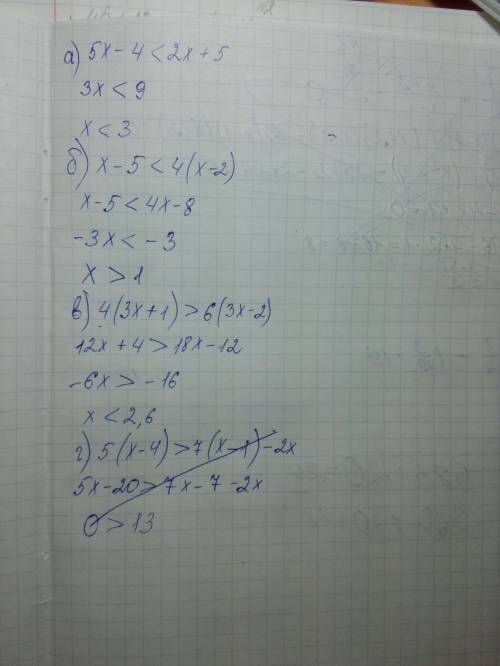 а) 5x - 4 < 2x + 5
3x < 9
x < 3
б) x - 5 < 4(x - 2)
x - 5 < 4x - 8
-3x < -3
x > 1
в) 4(3x + 1) > 6(3x - 2)
12x + 4 > 18x - 12
-6x > -16
x < 2,6
г) 5(x - 4) > 7(x - 1) - 2x
5x - 20 > 7x - 7 - 2x
0 > 13